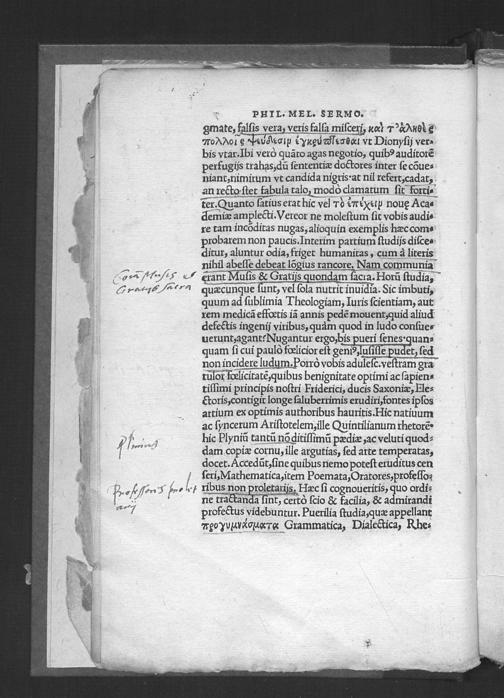 PHIL. MEL. SERMO.
gmate, falsis vera, veris falsa misceri, καὶ τ' ἀληθὲς
πολλοῖς ψεύδεσιν ἐγκρύπτεσθαι vt Dionysij ver⸗
bis vtar. Ibi verò quãro agas negotio, quibꝰ auditorẽ
perfugijs trahas, dũ sententiæ doctores inter se cõue⸗
niant, nimirum vt candida nigris: at nil refert, cadat,
an recto stet fabula talo, modò clamatum sit forti⸗
ter. Quanto satius erat hic vel τὸ ἐπέχειν nouę Aca⸗
demiæ amplecti. Vereor ne molestum sit vobis audi⸗
re tam incõditas nugas, alioquin exemplis hæc com⸗
probarem non paucis. Interim partium studijs disce⸗
ditur, aluntur odia, friget humanitas, cum à literis
nihil abesse debeat lõgius rancore. Nam communia
erant Musis & Gratijs quondam sacra. Horũ studia,
quæcunque sunt, vel sola nutrit inuidia. Sic imbuti,
quum ad sublimia Theologiam, Iuris scientiam, aut
rem medicã effœtis iã annis pedẽ mouent, quid aliud
defectis ingenij viribus, quàm quod in ludo consue⸗
uerunt, agant? Nugantur ergo, bis pueri senes: quan⸗
quam si cui paulò fœlicior est geniꝰ, lusisse pudet, sed
non incidere ludum. Porrò vobis adulesc. vestram gra
tulor fœlicitatẽ, quibus benignitate optimi ac sapien⸗
tissimi principis nostri Friderici, ducis Saxoniæ, Ele⸗
ctoris, contigit longe saluberrimis erudiri, fontes ipsos
artium ex optimis authoribus hauritis. Hic natiuum
ac syncerum Aristotelem, ille Quintilianum rhetorẽ⸗
hic Plyniũ tantũ nõ ditissimũ pædiæ, ac veluti quod⸗
dam copiæ cornu, ille argutias, sed arte temperatas,
docet. Accedũt, sine quibus nemo potest eruditus cen
seri, Mathematica, item Poemata, Oratores, professo⸗
ribus non proletarijs. Hæc si cognoueritis, quo ordi⸗
ne tractanda sint, certò scio & facilia, & admirandi
profectus videbuntur. Puerilia studia, quæ appellant
προγυμνάσματα Grammatica, Dialectica, Rhe⸗
Gratijs sacra
Plinius